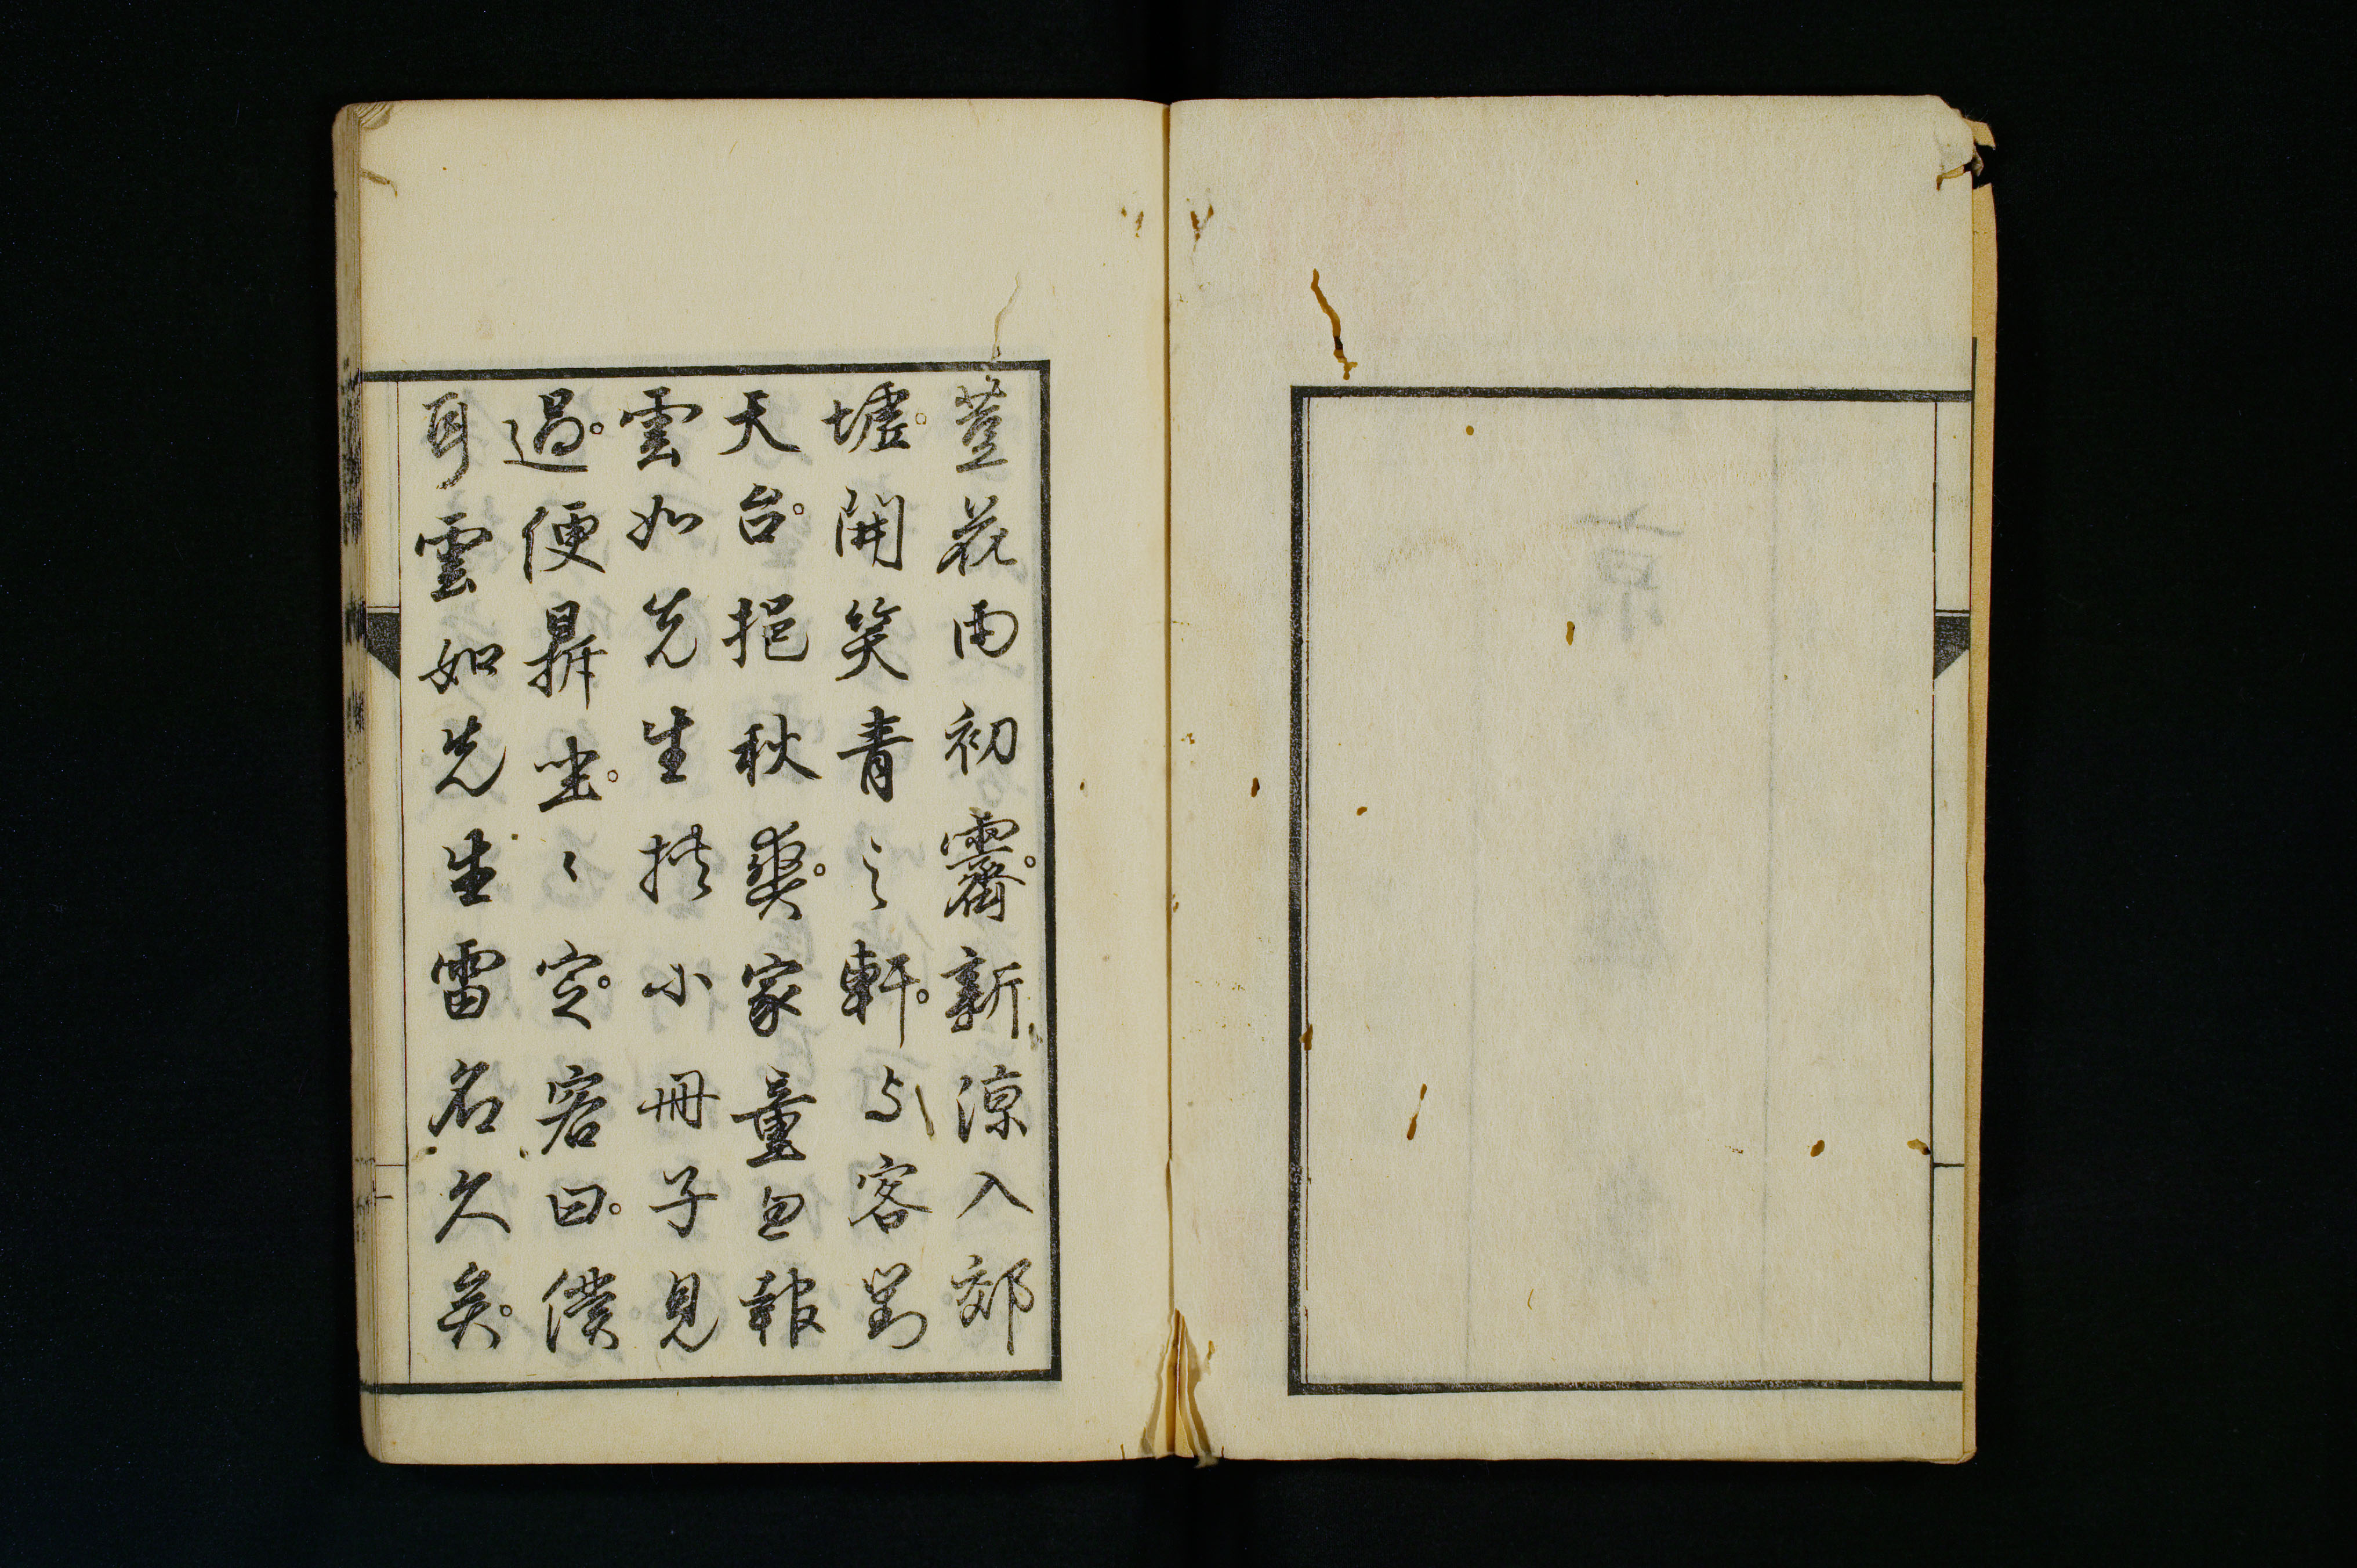 荳花雨初霽。新涼入郊
墟。開笑青之軒。与客對
天台。挹秋爽。家童忽報
雲如先生携小冊子見
過。便昇坐。〻定。客曰。僕
耳雲如先生雷名久矣。